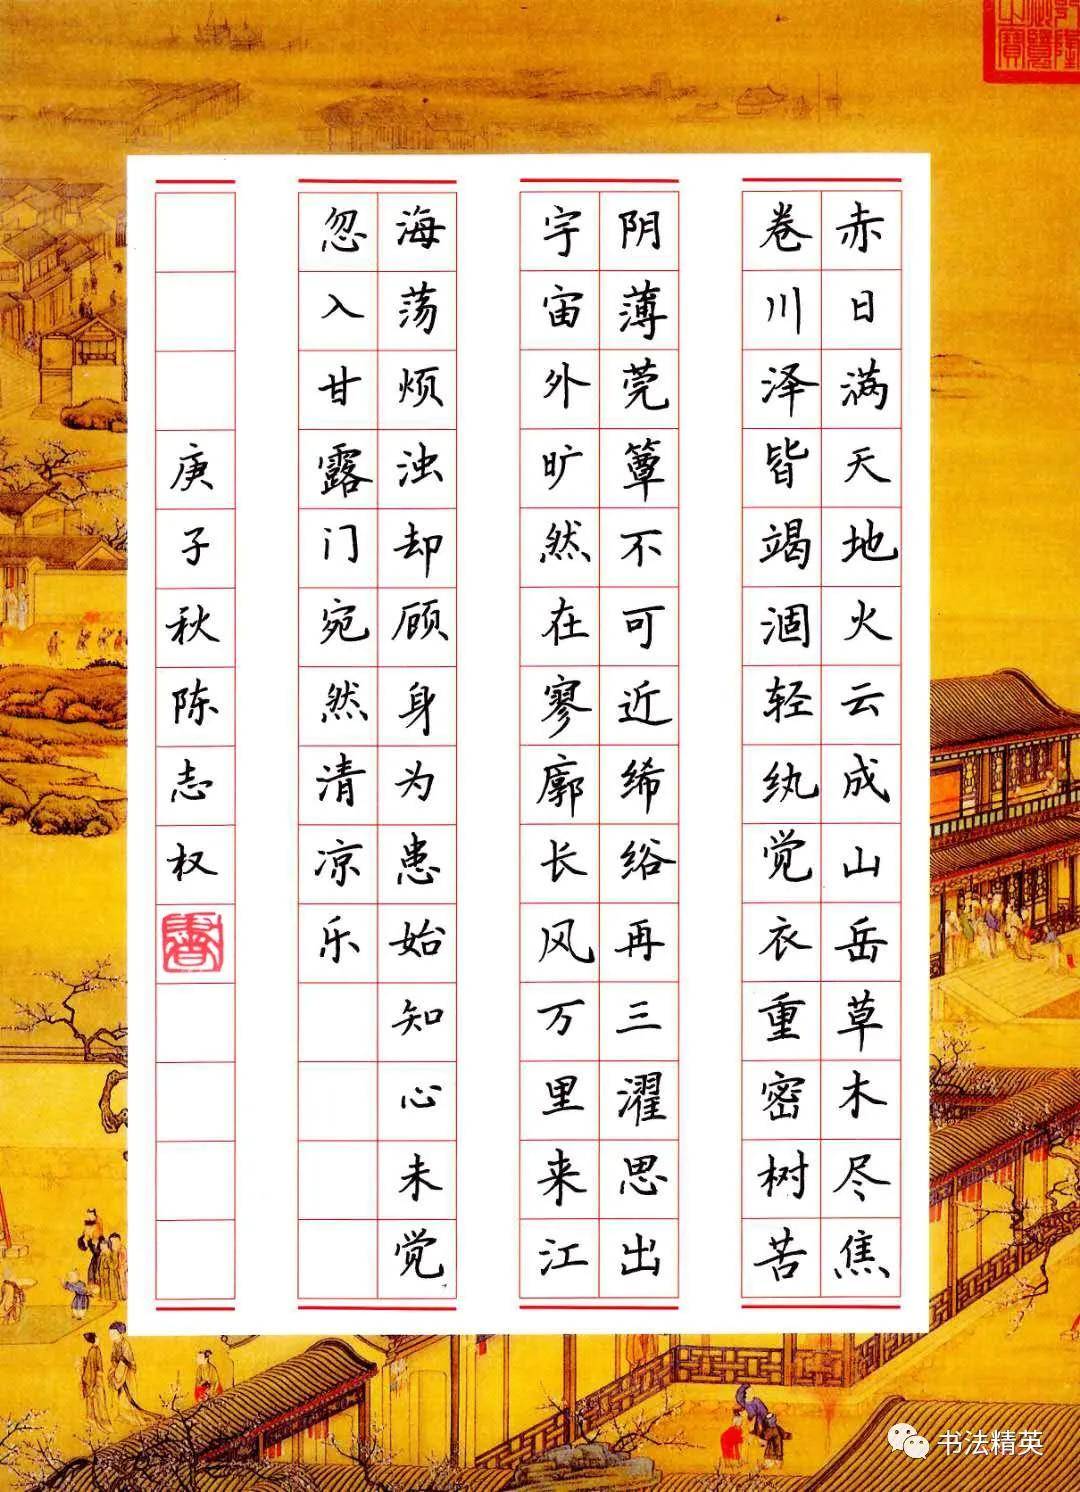 赤日满天地火云成山岳草木尽焦
卷川泽皆竭涸轻纨觉衣重密树苦
阴薄莞簟不可近絺绤再三濯思出
宇宙外旷然在寥廓长风万里来江
海荡烦浊却顾身为患始知心未觉
忽入甘露门宛然清凉乐
庚子秋陈志权
书法精英